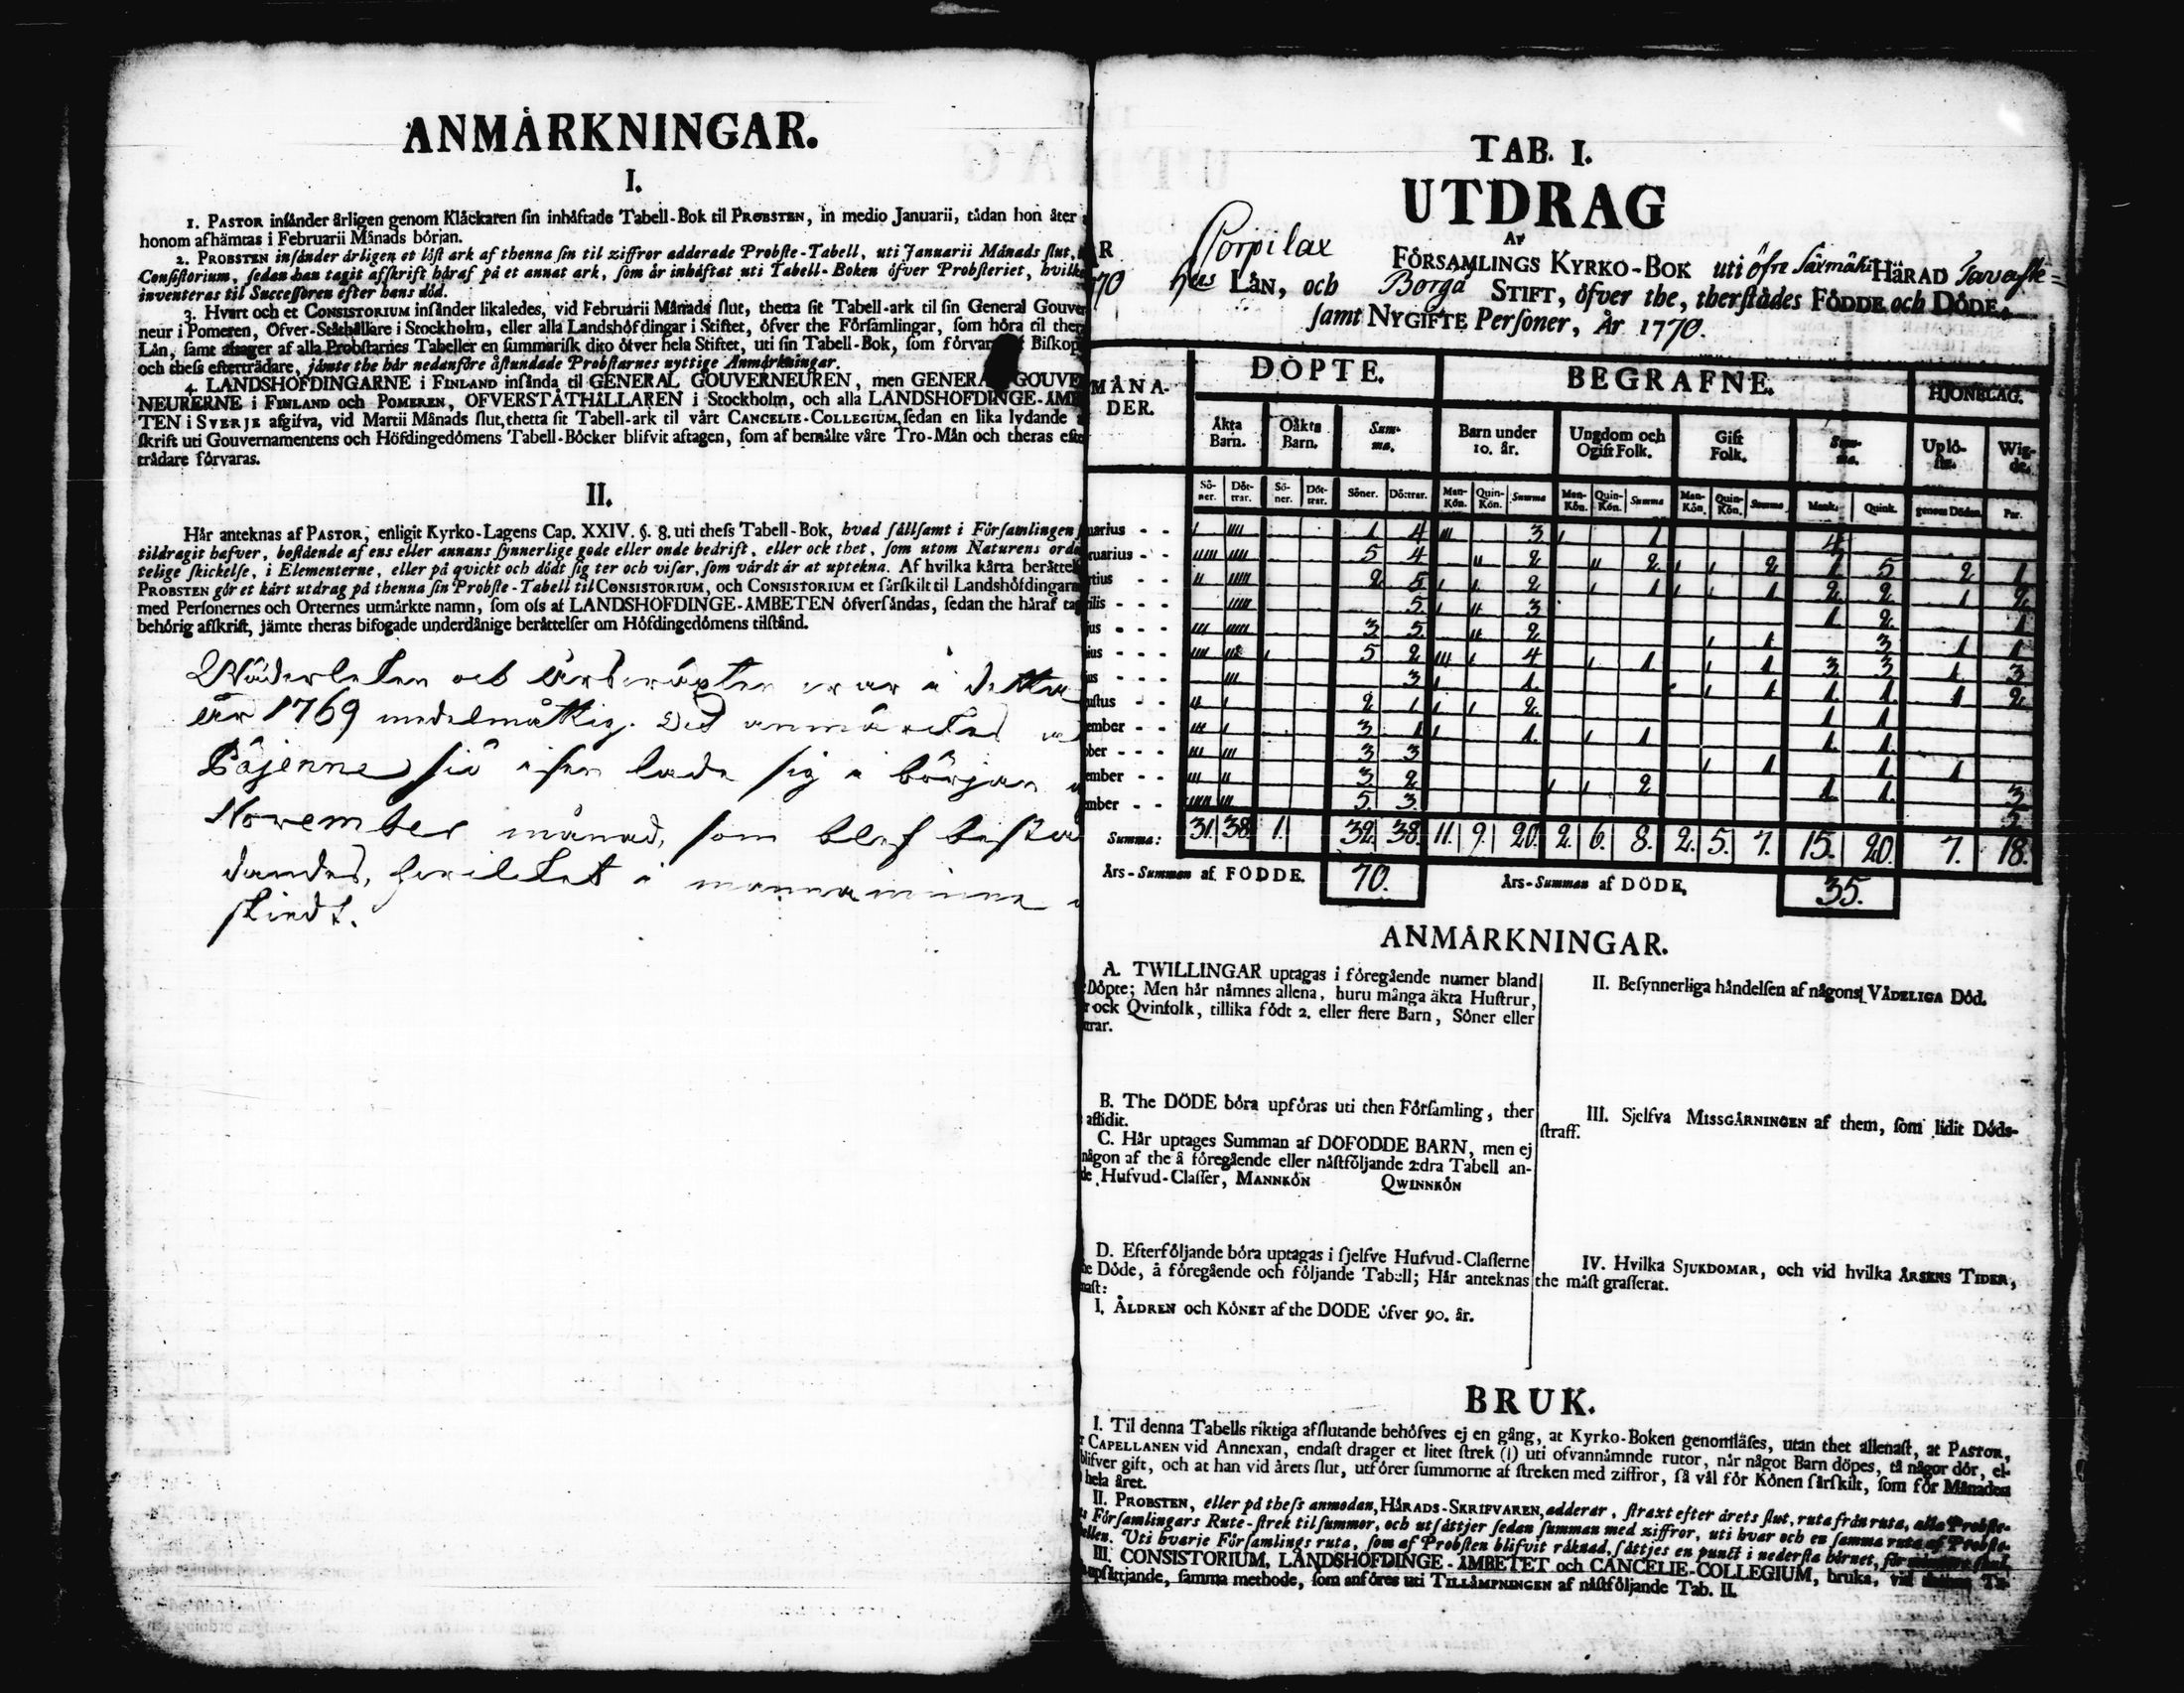 ANMÅRKNINGAR.
I.
1. PASTOR insänder årligen genom Klåckaren sin inhäftade Tabell-Bok til PROBSTEN, in medio Januarii, tådan hon åter
honom afhämtas i Februarii Månads början.
2. PROBSTEN insånder årligen et löst ark af thenna sin til ziffror adderade Probste-Tabell, uti Januarii Månads slut,
Consistorium, sedan han tagit afskrift håraf på et annat ark, som år inhåftat uti Tabell-Boken öfver Probsteriet, hvilke
inventeras til Successoren efter hans död.
3. Hvart och et CONSISTORIUM insånder likaledes, vid Februarii Månads slut, thetta sit Tabell-ark til sin General Gouver
neur i Pomeren, Öfver-Ståthållare i Stockholm, eller alla Landshöfdingar i Stiftet, öfver the Församlingar, som höra til ther
Lån, samt afsager af alla Probstarnes Tabeller en summarisk dito öfver hela Stiftet, uti sin Tabell-Bok, som förvar Biskop
och thess efterträdare, jämte the hår nedanföre åstundade Probstarnes nyttige Anmårkningar.
4. LANDSHÖFDINGARNE i FINLAND insånda til GENERAL GOUVERNEUREN, men GENERA GOUVE
NEURERNE i FINLAND och POMEREN, ÖFVERSTÅTHÅLLAREN i Stockholm, och alla LANDSHÖFDINGE-ÅMB
TEN i SVERJE afgifva, vid Martii Månads slut, thetta sit Tabell-ark til vårt CANCELIE-COLLEGIUM, sedan en lika lydande
skrift uti Gouvernamentens och Höfdingedömens Tabell-Böcker blifvit aftagen, som af bemålte våre Tro-Mån och theras efte
trådare förvaras.
II.
Hår anteknas af PASTOR, enligit Kyrko-Lagens Cap. XXIV. §. 8. uti thess Tabell-Bok, hvad sållsamt i Församlingen
tildragit hafver, bestående af ens eller annans synnerlige gode eller onde bedrift, eller ock thet, som utom Naturens orde
telige skickelse, i Elementerne, eller på qvickt och dödt sig ter och visar, som vårdt år at uptekna. Af hvilka kårta beråttel
PROBSTEN gör et kårt utdrag på thenna sin Probste-Tabell til CONSISTORIUM, och CONSISTORIUM et sårskilt til Landshöfdingarn
med Personernes och Orternes utmårkte namn, som oss af LANDSHÖFDINGE-ÅMBETEN öfversåndas, sedan the håraf ta
behörig afskrift, jämte theras bifogade underdånige beråttelser om Höfdingedömens tilstånd.
Wäderleken och årswäxten war i detta
år 1769 medelmåttig. Det anmärktes
Päjenne siö isen lade sig i början
November månad, som blef bestå
dandes, hwilket i mannaminne
skiedt.
TAB. I.
UTDRAG
AF
R Korpilax FÖRSAMLINGS KYRKO-BOK uti öfre Säxmäki HÄRAD Tavaste=
70 hus LÅN, och Borgå STIFT, öfver the, therstådes FÖDDE och DÖDE,
samt NYGIFTE Personer, År 1770.
MÅNA-DER. DÖPTE. BEGRAFNE. HJONELAG.
Åkta Barn. Oåkta Barn. Summa. Barn under 10. år. Ungdom och Ogift Folk. Gift Folk. Summa. Uplöste. Wigde.
Söner. Döttrar. Söner. Döttrar. Söner. Döttrar. Man-Kön. Quin-Kön. Summa Man-Kön. Quin-Kön. Summa Man-Kön. Quin-Kön. Summa Mank. Quink. genom Döden. Par.
nuarius - - 1 4 3 1 4
ruarius - - 5 4 2 2 2 1 5 2 1
rtius - - 2 5 2 1 1 2 2 1 2
rilis - - - 5 3 1 2 1
jus - - - 3 5 2 1 3 1 1
ius - - - 5 2 4 1 1 3 3 1 3
us - - - 3 1 1 1 1 1 2
ustus - - 2 1 2 1 1
ember - - 3 1 1 1 1 1
ber - - - 3 3 1 1 1
ember - - 3 2 2 1 1 3
mber - - 5 3 5
Summa: 31. 38. 1. 32. 38. 11. 9. 20. 2. 6. 8. 2. 5. 7. 15. 20. 7. 18.
Års-Summan af FÖDDE. 70. Års-Summan af DÖDE, 35.
ANMÅRKNINGAR.
A. TWILLINGAR uptagas i föregående numer bland
Döpte; Men hår nåmnes allena, huru många äkta Hustrur,
r ock Qvinfolk, tillika födt 2. eller flere Barn, Söner eller
trar.
B. The DÖDE böra upföras uti then Församling, ther
aflidit.
C. Hår uptages Summan af DÖFÖDDE BARN, men ej
någon af the å föregående eller nåstföljande 2:dra Tabell an-
de Hufvud-Classer, MANNKÖN QWINNKÖN
D. Efterföljande böra uptagas i sjelfve Hufvud-Classerne
e Döde, å föregående och följande Tabell; Hår anteknas
nast:
I. ÅLDREN och KÖNET af the DÖDE öfver 90. år.
II. Besynnerliga håndelsen af någons VÅDELIGA Död.
III. Sjelfva MISSGÅRNINGEN af them, som lidit Döds-
straff.
IV. Hvilka SJUKDOMAR, och vid hvilka ÅRSENS TIDER,
the måst grasserat.
BRUK.
I. Til denna Tabells riktiga afslutande behöfves ej en gång, at Kyrko-Boken genomläses, utan thet allenast, at PASTOR,
r CAPELLANEN vid Annexan, endast drager et litet strek (|) uti ofvannåmnde rutor, når något Barn döpes, tå någor dör, el-
blifver gift, och at han vid årets slut, utförer summorne af streken med ziffror, så vål för Könen sårskilt, som för Månaden
hela året.
II. PROBSTEN, eller på thess anmodan, HÅRADS-SKRIFVAREN, adderar, straxt efter årets slut, ruta från ruta, alla Probste-
s Församlingars Rute-strek til summor, och utsåttjer sedan summan med ziffror, uti hvar och en samma ruta af Probste-
ellen. Uti hvarje Församlings ruta, som af Probsten blifvit råknad, såttjes en punct i nedersta hörnet,
III. CONSISTORIUM, LANDSHÖFDINGE-ÅMBETET och CANCELIE-COLLEGIUM, bruka, vid
upsåttjande, samma methode, som anföres uti TILLÅMPNINGEN af nåstföljande Tab. II.